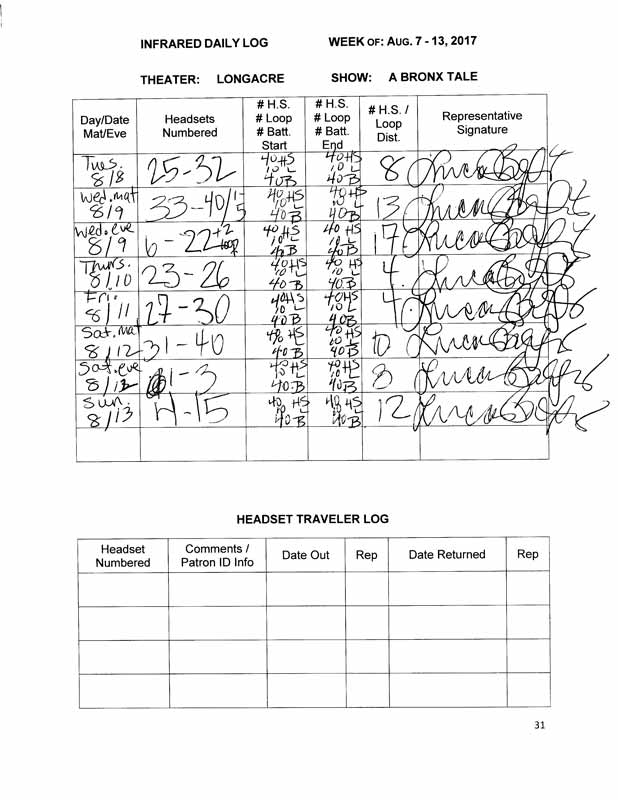 INFRARED DAILY LOG WEEK OF: AUG. 7 - 13, 2017
THEATER: LONGACRE SHOW: A BRONX TALE
Day/Date Mat/Eve Headsets Numbered # H.S. # Loop # Batt. Start # H.S. # Loop # Batt. End # H.S. / Loop Dist. Representative Signature
Tues. 8/8 25-32 40HS 10 L 40B 40HS 10 L 40B 8
Wed. mat 8/9 33-40/1-5 40 HS 10 L 40B 40 HS 10 L 40B 13
Wed. eve 8/9 6-22+2 loop 40 HS 10 L 40B 40 HS 10 L 40B 17
Thurs. 8/10 23-26 40HS 10 L 40B 40 HS 10 L 40B 4
Fri. 8/11 27-30 40HS 10 L 40B 40HS 10 L 40B 4
Sat. mat 8/12 31-40 40 HS 10 L 40B 40HS 10 L 40B 10
Sat. eve 8/12 1-3 40HS 10 L 40B 40HS 10 L 40B 3
Sun. 8/13 4-15 40 HS 10 L 40B 40 HS 10 L 40B 12
HEADSET TRAVELER LOG
Headset Numbered Comments / Patron ID Info Date Out Rep Date Returned Rep
31